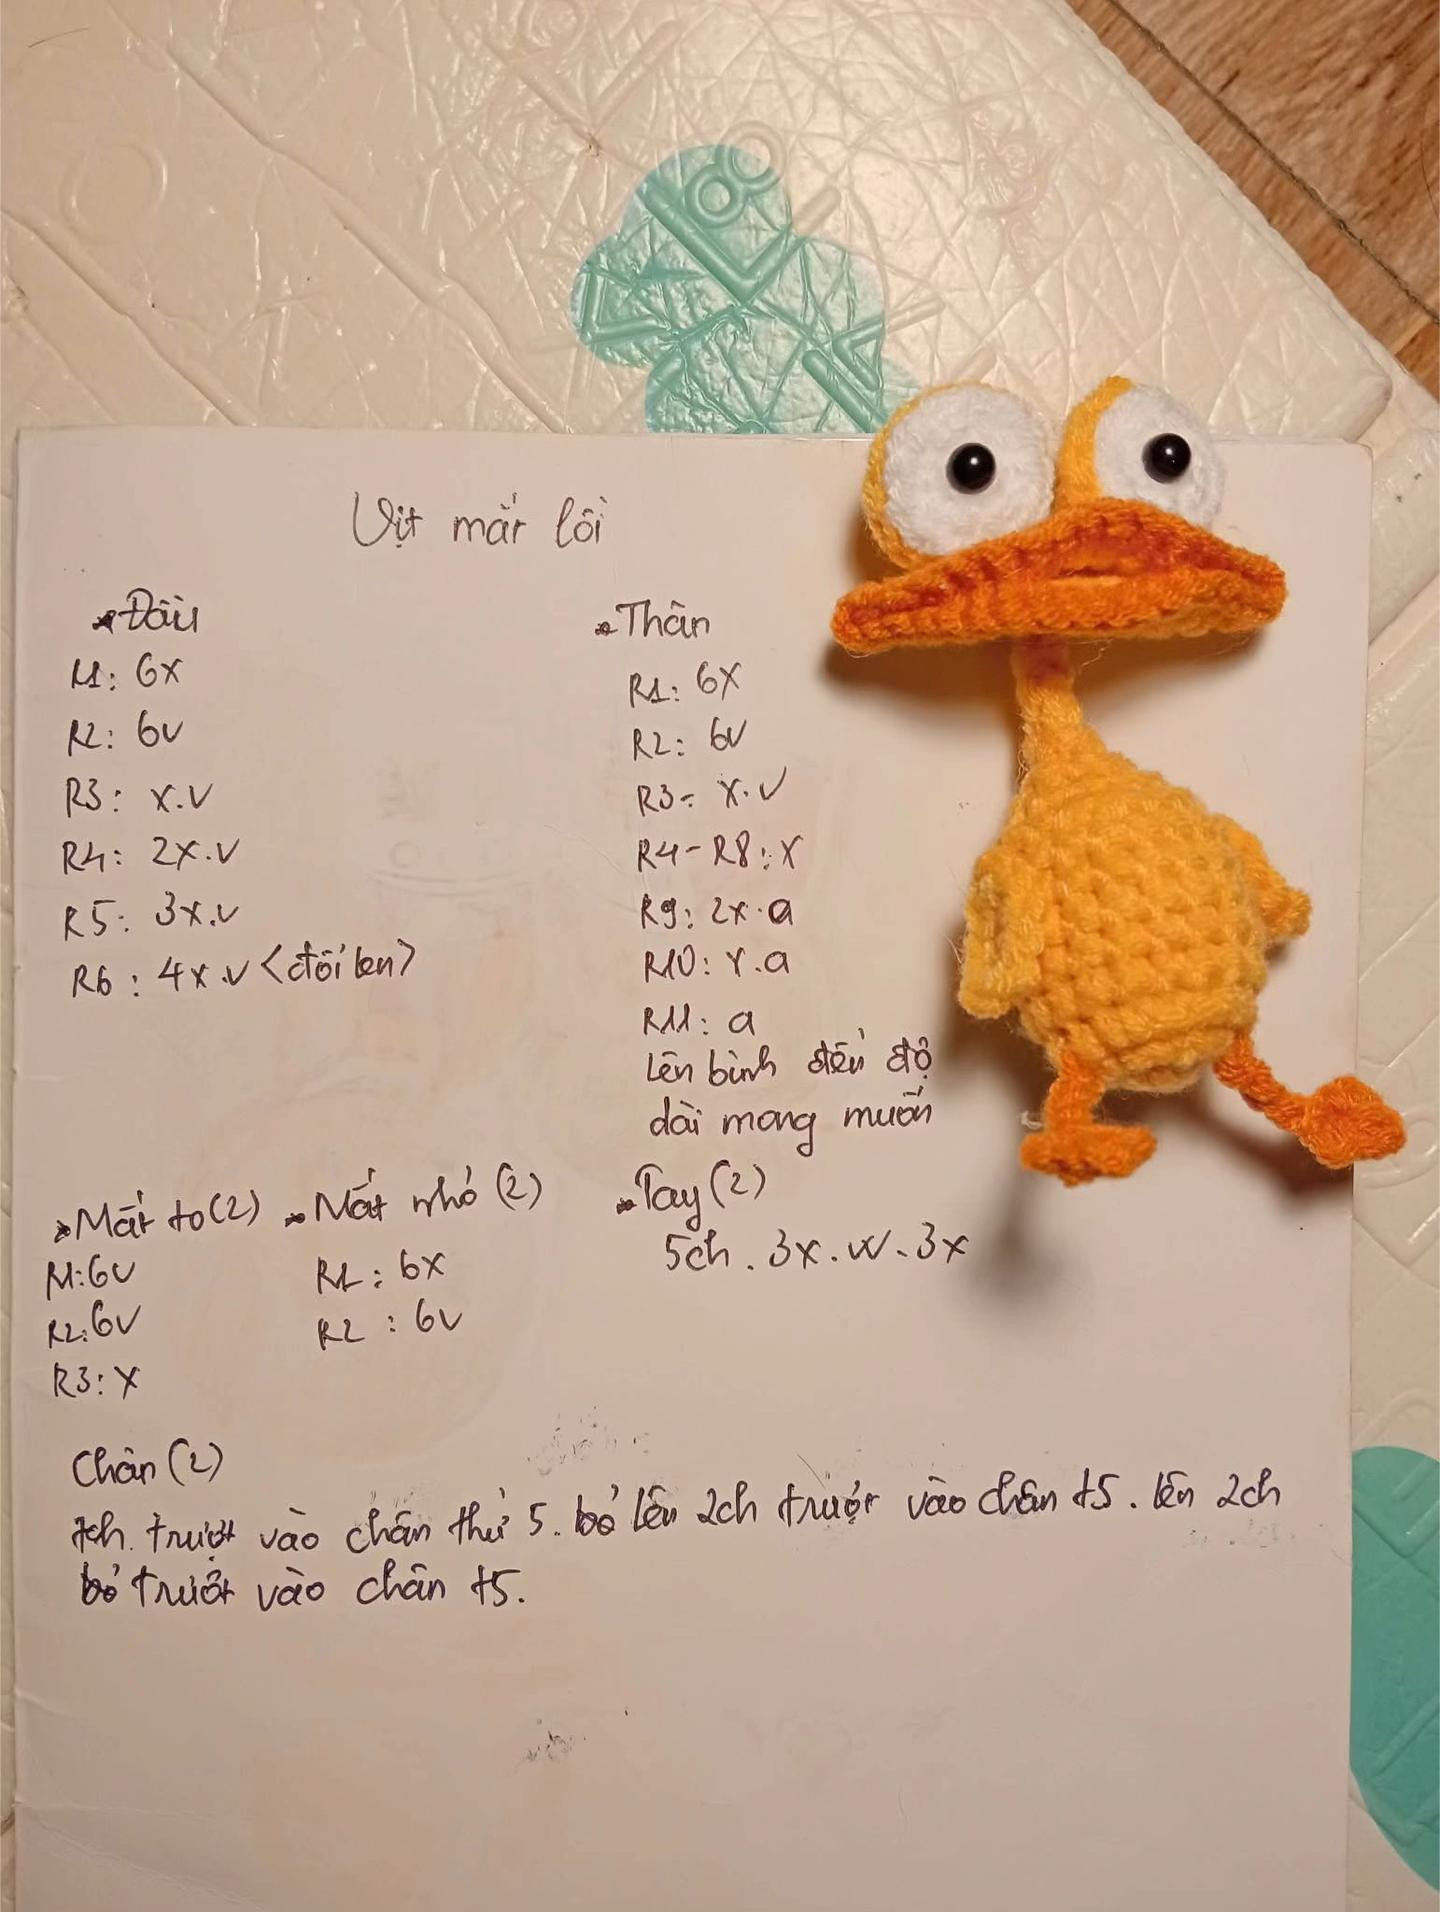 Vịt mắt lồi
* Đầu
R1: 6x
R2: 6v
R3: x.v
R4: 2x.v
R5: 3x.v
R6: 4x.v <đổi len>
* Thân
R1: 6x
R2: 6v
R3: x.v
R4 - R8: x
R9: 2x.a
R10: x.a
R11: a
Lên bình đến độ
dài mong muốn
* Mắt to (2)
R1: 6v
R2: 6v
R3: x
* Mắt nhỏ (2)
R1: 6x
R2: 6v
* Tay (2)
5ch. 3x. w. 3x
Chân (2)
7ch. trượt vào chân thứ 5. bỏ lên 2ch trượt vào chân t5. lên 2ch
bỏ trượt vào chân t5.